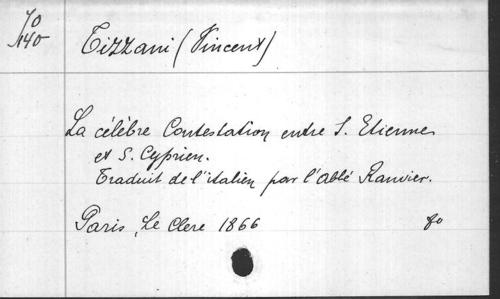 70
140
Tizzani (Vincent)
La célèbre Contestation entre S. Etienne
et S. Cyprien.
Traduit de l'italien par l'Abbé Ranvier.
Paris, Le Clere 1866
fo